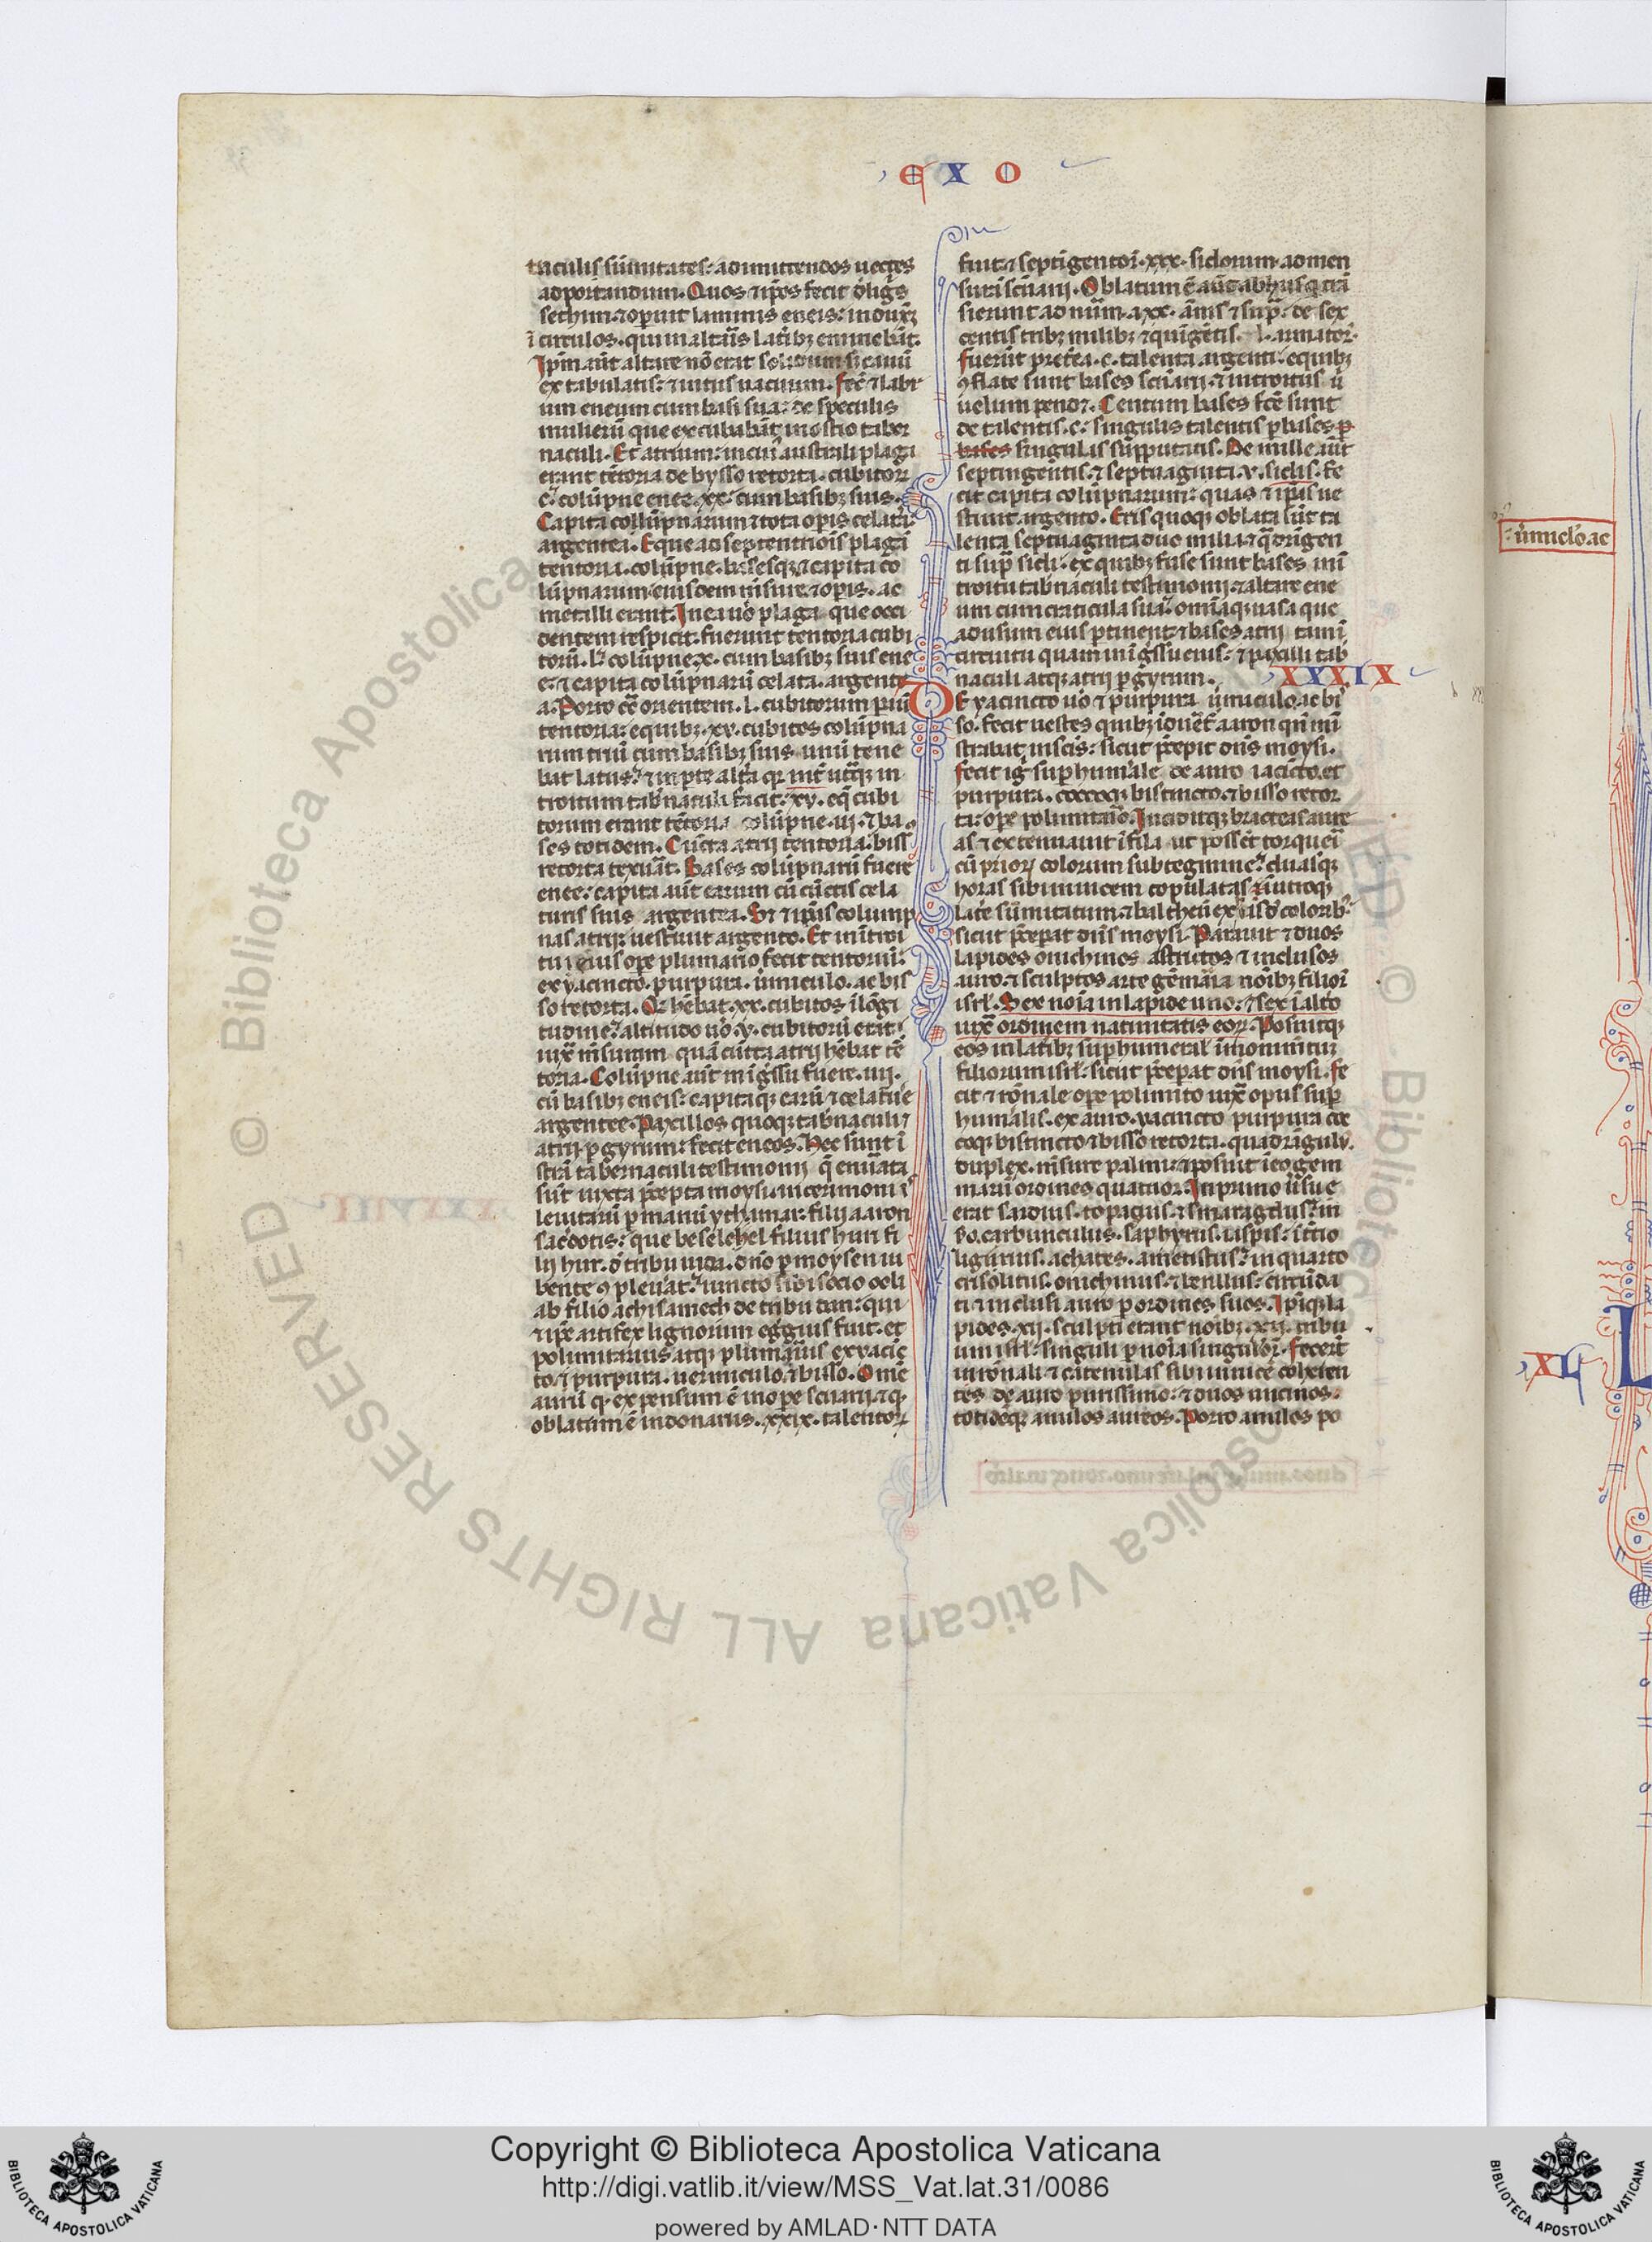 EXO
taculi s sūmitates: ad mittendos uectes
ad portandum. Quos ⁊ ip̄os fecit d̓ lig̓s
sethim. ⁊ op̄uit laminis eneis: induxꝫ
ī circulos. qui in alta̓is latībꝫ eminebāt.
Ip̄m aūt altare nō erat solidum. sꝫ cauū
ex tabulatis: ⁊ intus uacuum. fec̄ ⁊ labr
um eneum cum basi sua: de speculis
mulierū que excubabāt in ostio taber
naculi. Et atrium: in cui̓ australi plaga
erant tētoria de bysso retorta. cubitoꝝ
c. colūpne enee .xx. cum basibꝫ suis.
Capita collūpnarum ⁊ tota opis celatᷓ
argentea. Eque ad septentriōis plagā
tentoria. colūpne. basesqꝫ ⁊ capita co
lūpnarum eiusdem mēsure. ⁊ opis. ac
metalli erant. In ea uō plaga que occi
dentem respicit. fuerunt tentoria cubi
torū .l. colūpne .x. cum basibꝫ suis ene
e: ⁊ capita colūpnarū celata. argente
a. Porro cō orientem .l. cubitorum par̓
tentoria: equibꝫ .xv. cubitos colūpna
rum triū cum basibꝫ suis unū tene
bat latus: ⁊ in p̱te alta q̓ int̄ utq̓ꝫ in
troitum tab̓naculi facit: xv. eq̓ cubi
torum erant tētoria colūpne .iij. ⁊ ba
ses totidem. Cūcta atrij tentoria: biss
retorta texuāt. Bases colūpnarū fuere
enee: capita aūt earum cū cūctis cela
turis suis argentea. Sꝫ ⁊ ip̄as colump
nas atrij: uestiuit argento. Et in introi
tu eius ope plumario fecit tentoriū:
ex yacincto. purpura. ūmiculo. ac bis
so retorta. Qꝫ hēbat .xx. cubitos ī lōgi
tudine: altitudo uō .v. cubitorū erat:
iuxᷓ m̄suram quā cūcta atrij hēbāt tē
toria. Colūpne aūt in īg̓ssu fuere .iiij.
cū basibꝫ eneis: capitaqꝫ earū ⁊ celatūe
argentee. Paxillos quoqꝫ tab̓naculi ⁊
atrij p̱ gyrum: fecit eneos. Hec sunt ī
strā tabernaculi testimonij q̄ enūata
sūt iuxta p̄cepta moysi. in cerimoniis
leuitarū p̱ manū ythamar: filij aaron
sacdotis: que beselehel filius huri fi
lij hur. d̓ tribu iuda. dn̄o p̱ moysen iu
bente ꝯpleuāt: iuncto sibi socio ooli
ab filio achisamech de tribu dan: qui
⁊ ip̄e artifex lignorum eg̓gius fuit. et
polimitarius atqꝫ plumarius ex yacīc
to. ⁊ purpura. uermiculo. ⁊ bisso. Omē
aurū q̄ expensum ē in ope scūarij. ⁊ q̄
oblatum ē in donariis .xxix. talentoꝝ
fuit. ⁊ septigentoꝝ .xxx. siclorum. ad men
surā scūarij. Oblatum ē aūt ab hijs q̓ trā
sierunt ad nūm .a xx. ānis ⁊ supᷓ: de sex
centis tribꝫ milibꝫ ⁊ quīgētis .l. armatoꝝ.
fuerūt pret̓ea .c. talenta argenti. equibꝫ
ꝯflate sunt bases scūarij. ⁊ introitus ū
uelum pendꝫ. Centum bases fcē sunt
de talentis .c. singulis talentis p̱ bases p̱
bases singulis sūpputatis. De mille aūt
septingentis. ⁊ septuaginta .v. siclis. fe
cit capita colūpnarum: quas ⁊ ip̄as ue
stiuit argento. Eris quoqꝫ oblata sūt ta
lenta septuaginta duo milia ⁊ q̓dringen
ti sup̱ sicli. ex quibꝫ fuse sunt bases in ī
troitu tab̓naculi testimonij. ⁊ altare ene
um cum craticula sua: omīaqꝫ uasa que
ad usum eius ptinent. ⁊ bases atrij tam ī
circuitu quam in īg̓ssu eius: ⁊ paxilli tab
naculi atqꝫ atrij p̱ gyrum. XXXIX
DE yacincto uō ⁊ purpura ūmiculo. ac bi
so. fecit uestes quibꝫ īdueret̄ aaron qn̄ mī
strabat in scīs: sicut p̄cepit dn̄s moysi.
fecit ig̓ suphum̄ale de auro iacīcto. et
purpura. coccoqꝫ bistincto. ⁊ bisso retor
ta: ope polimitario. Inciditqꝫ bracteas aure
as ⁊ extenuauit ī fila ut possēt torqueri
cū priorꝫ colorum subtegmine: duasqꝫ
horas sibi inuicem copulatas ī utroqꝫ
late sūmitatum. ⁊ baltheū ex hisd̄ colorib̓.
sicut p̄ceperat dn̄s moysi. Parauit ⁊ duos
lapides onichinos astrictos ⁊ inclusos
auro. ⁊ sculptos arte gēmaria noībꝫ filioꝝ
isrl̄. Sex noīa in lapide uno: ⁊ sex ī alto
iuxᷓ ordinem natiuitatis eoꝝ. Posuitqꝫ
eos in latībꝫ suphumeral̄ in monimtū
filiorum isrl̄: sicut p̄ceperat dn̄s moysi. fe
cit ⁊ rōnale ope polimito iuxᷓ opus sup̱
humalis. ex auro. yacincto purpura coc
coqꝫ bistincto ⁊ bisso retorta. quadrāgulū.
duplex. m̄sure palmi: ⁊ posuit ī eo gem
marū ordines quatuor. In primo ūsu e
erat sardius. topazius. ⁊ smaragdus: in
s̄do. carbunculus. saphyrus. iaspis: ī t̓cio
ligurius. achates. ametistus: in quarto
crisolitus. onichinus. ⁊ berillus: circūda
ti ⁊ inclusi auro p̱ ordines suos. Ip̄iqꝫ la
pides .xij. sculpti erant noībꝫ .xij. tribu
um isrl̄: singuli p̱ noīa singuloꝝ. fecert̄
in rōnali ⁊ catenulas sibi inuicē coheren
tes de auro purissimo: ⁊ duos uncinos.
totidēqꝫ anulos aureos. Porro anulos po
ūmiclo. ac
XL
L
Copyright © Biblioteca Apostolica Vaticana
http://digi.vatlib.it/view/MSS_Vat.lat.31/0086
powered by AMLAD·NTT DATA
BIBLIOTECA APOSTOLICA VATICANA
BIBLIOTECA APOSTOLICA VATICANA
© Biblioteca Apostolica Vaticana ALL RIGHTS RESERVED